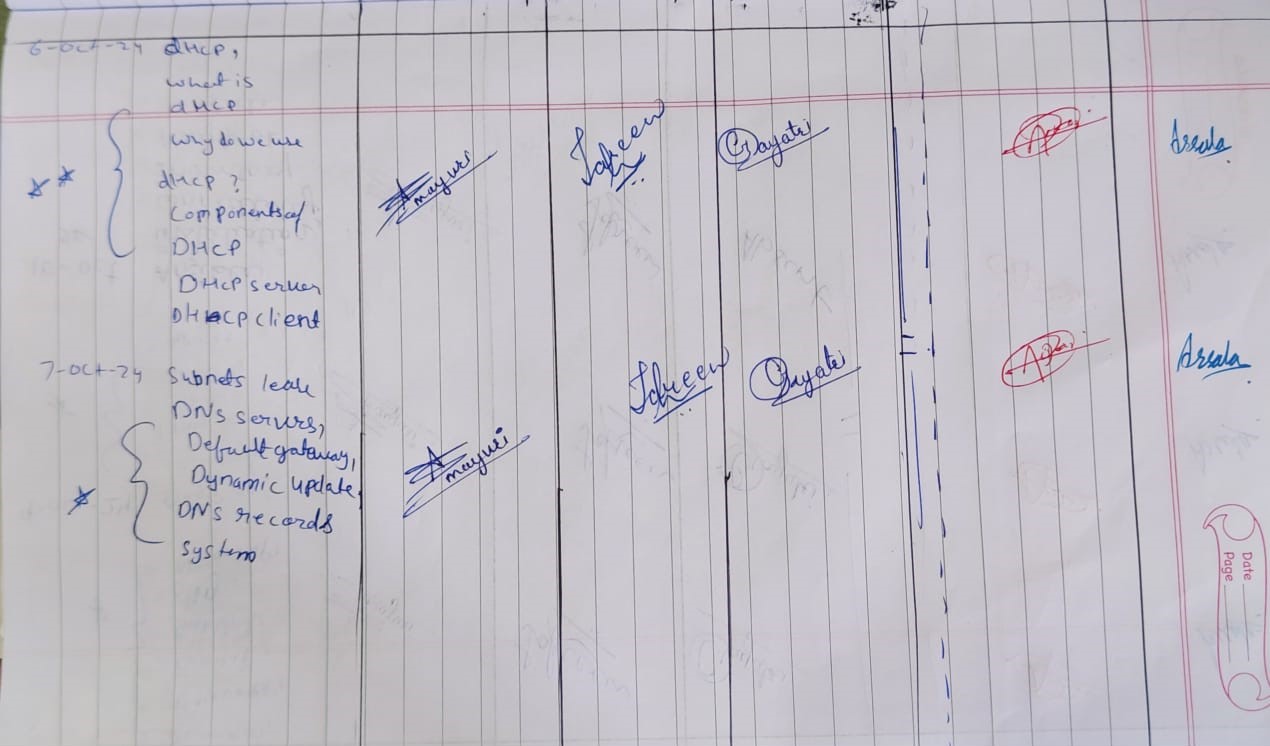 6-Oct-24 dHcp,
what is
dHcp
why do we use
dHcp ?
Components of
DHcp
DHcp server
DHcp client
mayuri
Gayatri
Arsala
7-Oct-24 Subnets leave
DNS servers,
Default gateway,
Dynamic update
DNS records
System
mayuri
Gayatri
Arsala
Date
Page